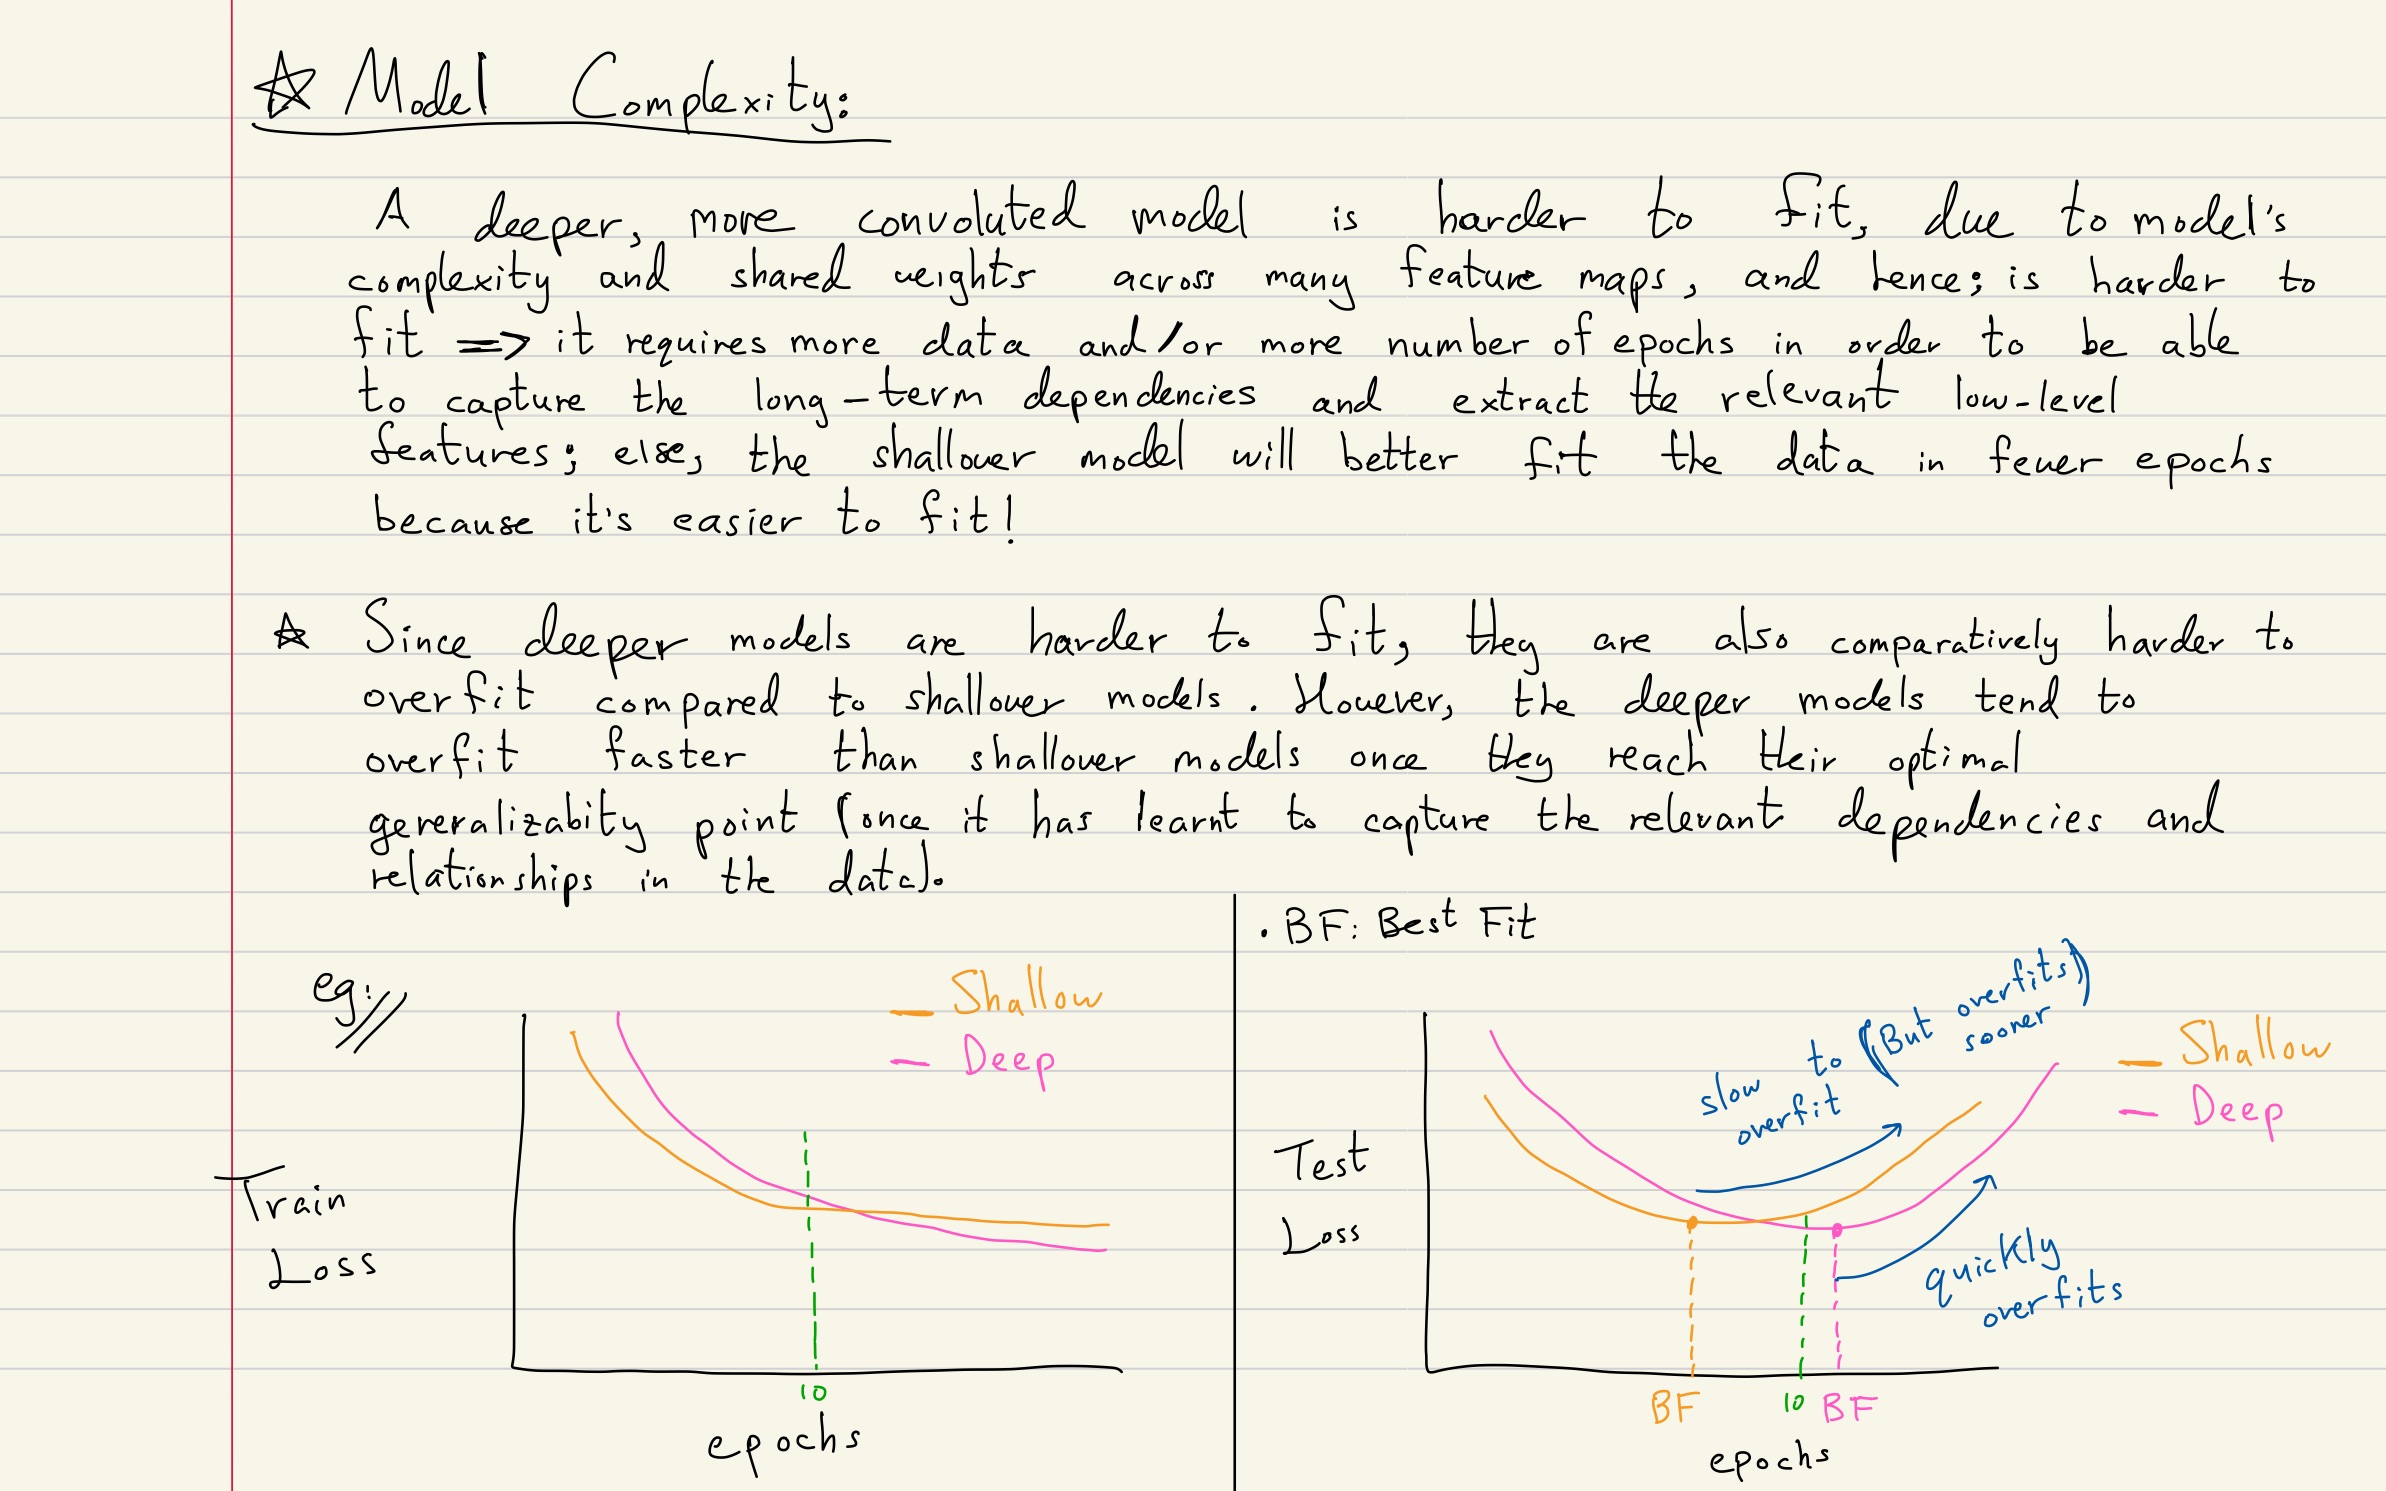 ☆ Model Complexity:
A deeper, more convoluted model is harder to fit, due to model's
complexity and shared weights across many feature maps, and hence; is harder to
fit => it requires more data and/or more number of epochs in order to be able
to capture the long-term dependencies and extract the relevant low-level
features; else, the shallower model will better fit the data in fewer epochs
because it's easier to fit!
☆ Since deeper models are harder to fit, they are also comparatively harder to
overfit compared to shallower models. However, the deeper models tend to
overfit faster than shallower models once they reach their optimal
generalizabity point (once it has learnt to capture the relevant dependencies and
relationships in the data).
eg://
— Shallow
— Deep
Train
Loss
10
epochs
. BF: Best Fit
slow to (But overfits)
overfit sooner
— Shallow
— Deep
Test
Loss
quickly
overfits
BF 10 BF
epochs